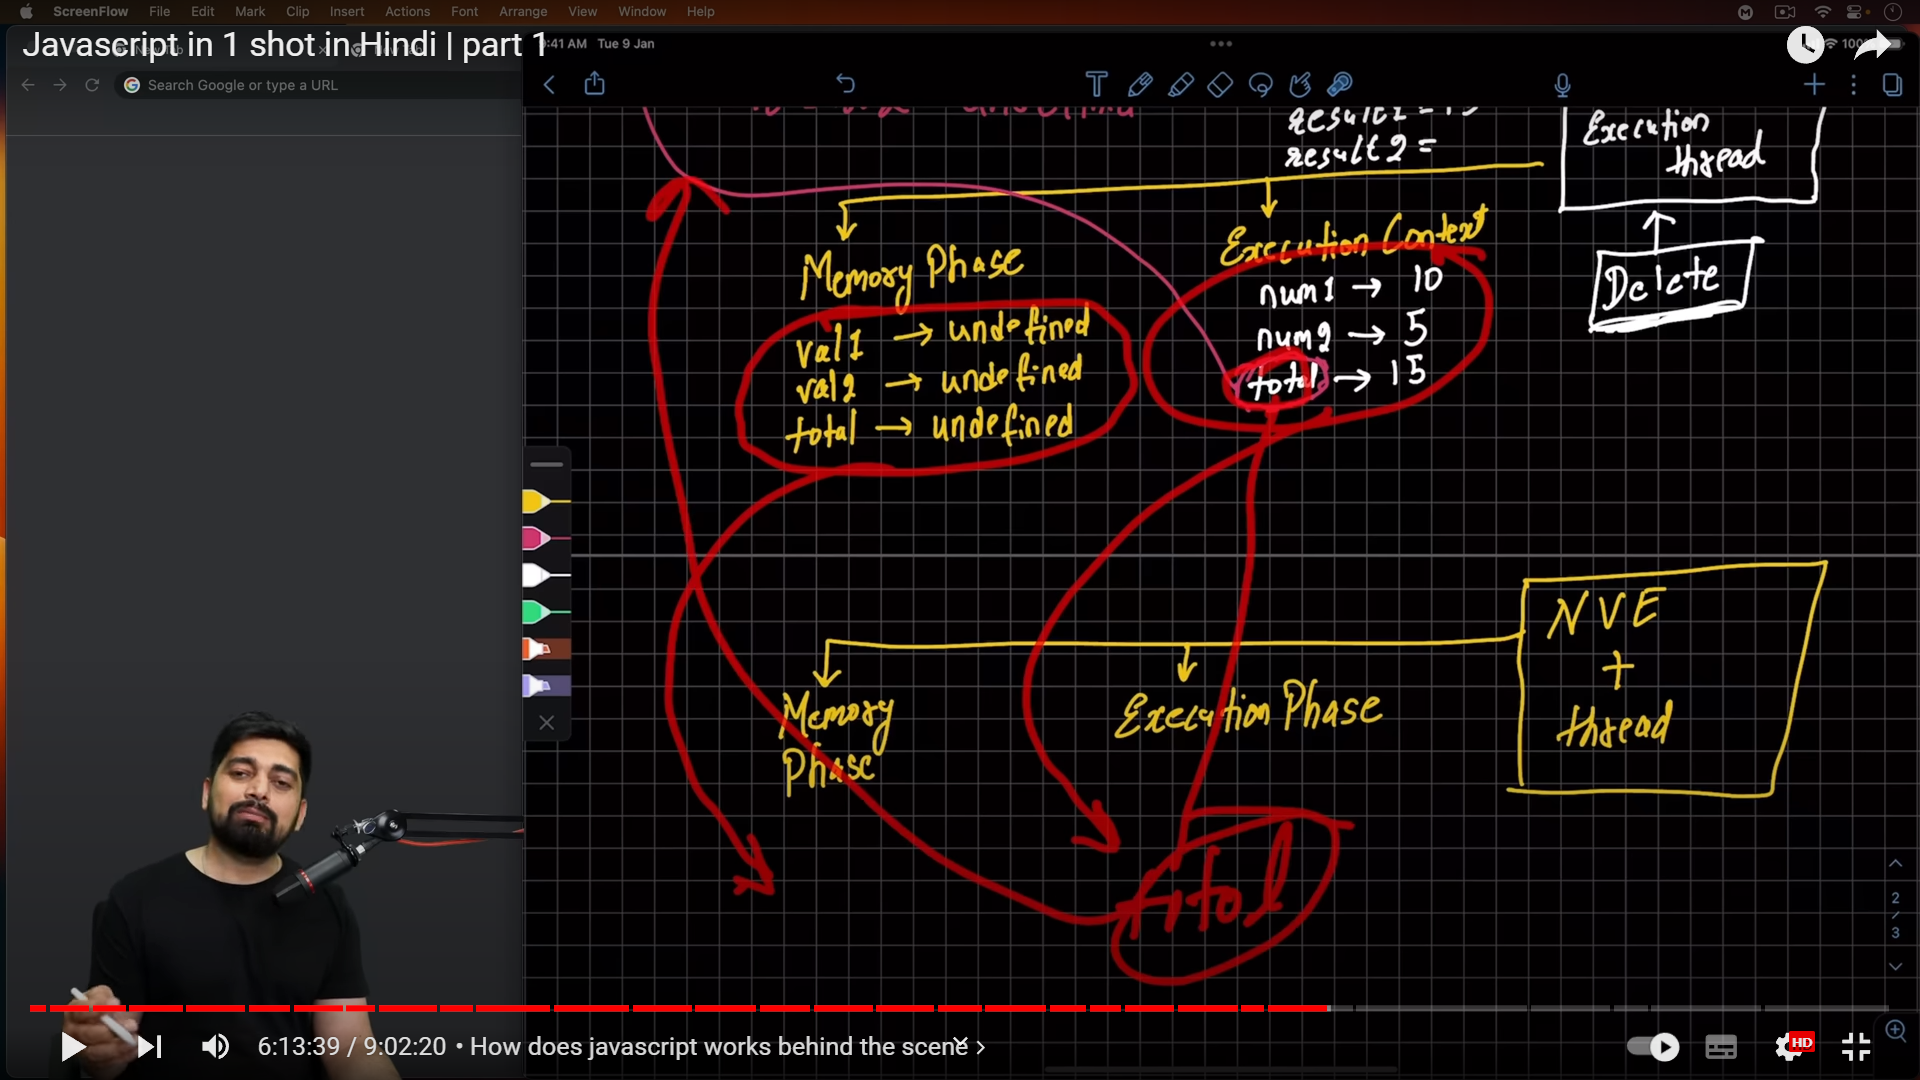 ScreenFlow File Edit Mark Clip Insert Actions Font Arrange View Window Help
Javascript in 1 shot in Hindi | part 1
:41 AM Tue 9 Jan
100%
Search Google or type a URL
result2 =
Execution
thread
Delete
Memory Phase
val1 → undefined
val2 → undefined
total → undefined
Execution Context
num1 → 10
num2 → 5
total → 15
NVE
+
thread
Memory
Phase
Execution Phase
total
2
/
3
6:13:39 / 9:02:20 • How does javascript works behind the scene
HD